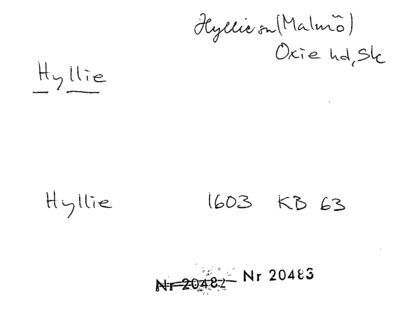 Hyllie sn (Malmö)
Oxie hd, Sk
Hyllie
Hyllie 1603 KB 63
Nr 20482 Nr 20483